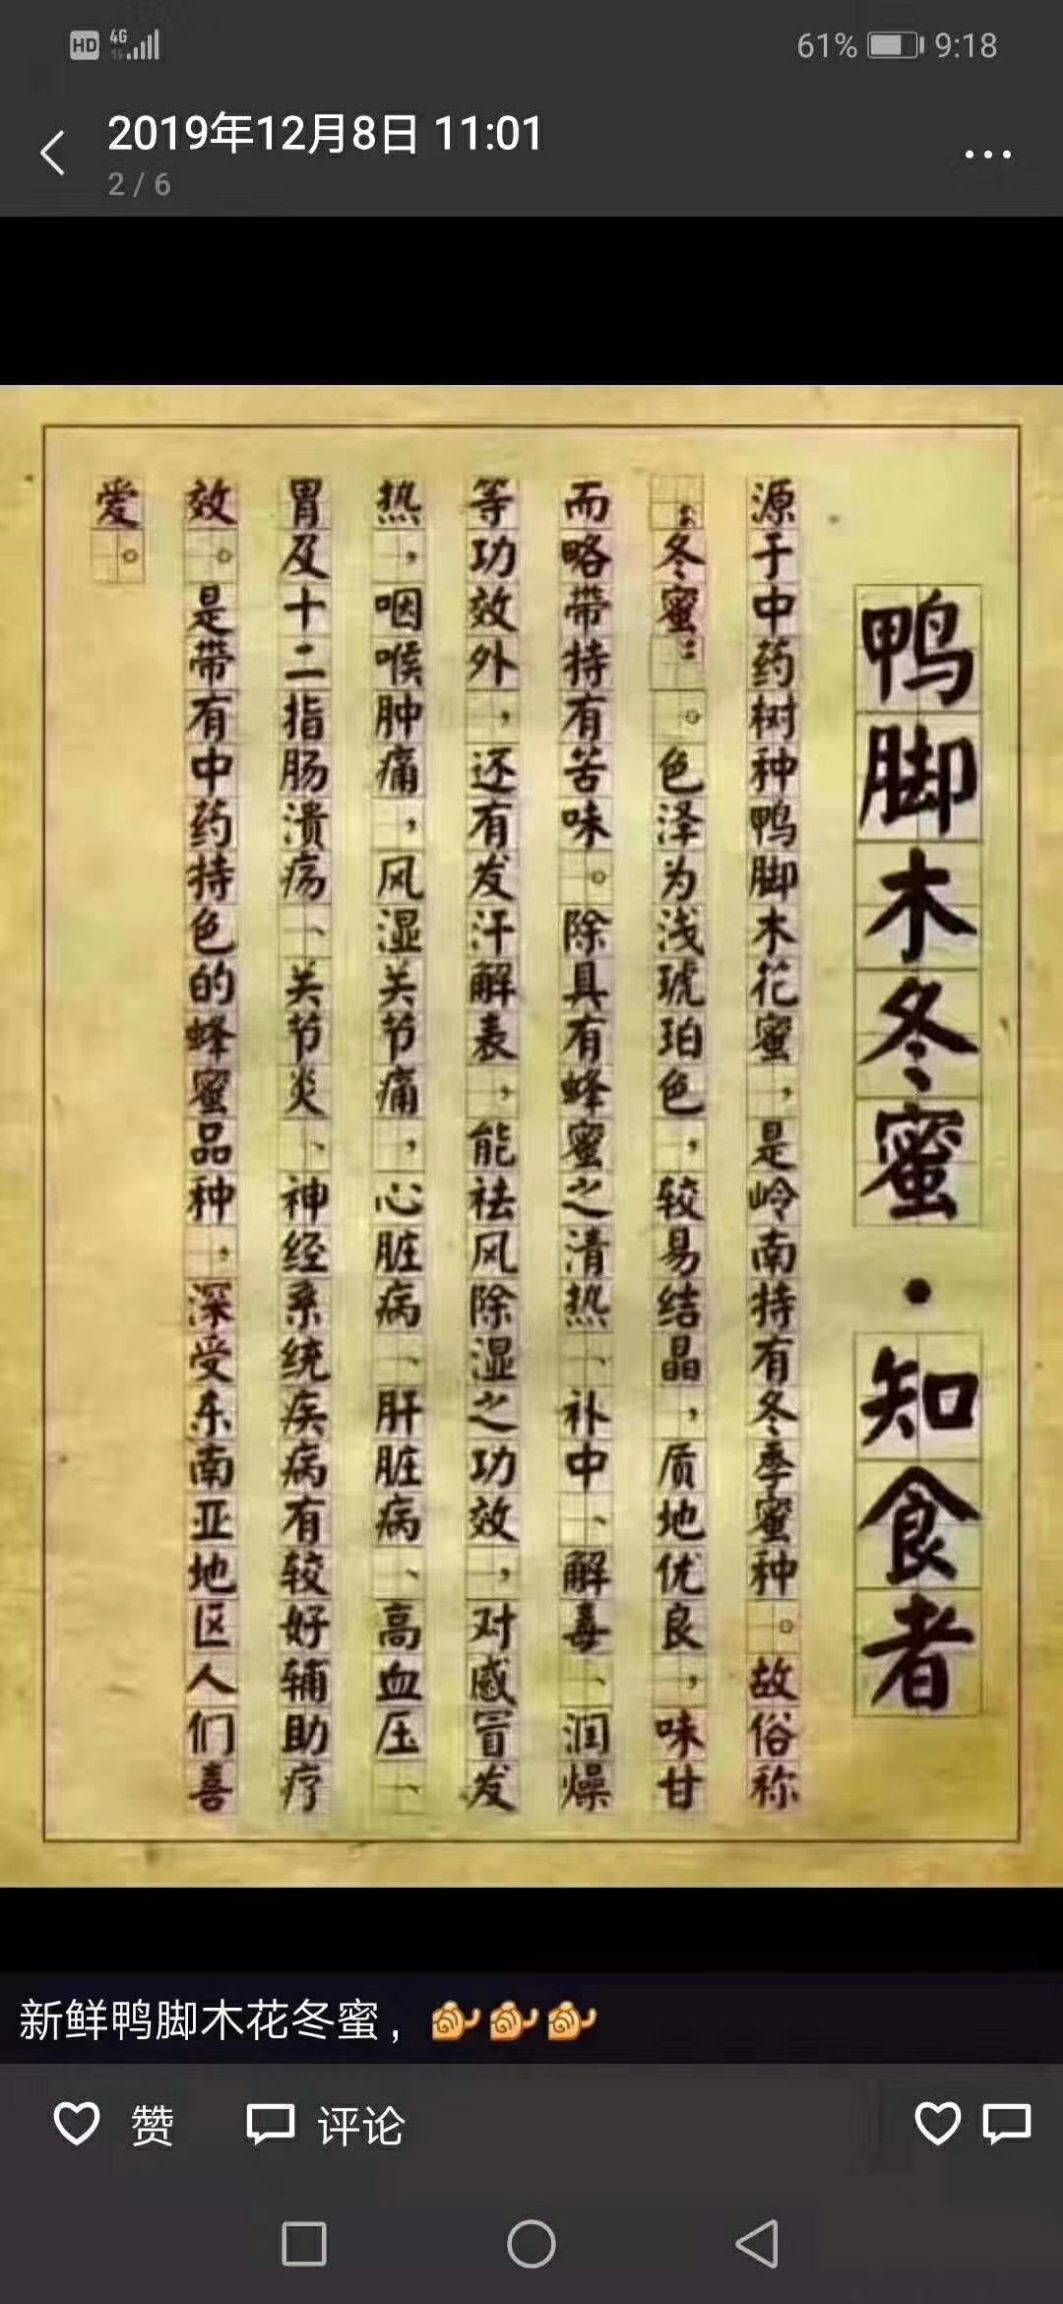 HD 4G 61% 9:18
2019年12月8日 11:01
2 / 6
鸭脚木冬蜜·知食者
源于中药树种鸭脚木花蜜，是岭南特有冬季蜜种。故俗称
“冬蜜”。色泽为浅琥珀色，较易结晶，质地优良，味甘
而略带持有苦味。除具有蜂蜜之清热、补中、解毒、润燥
等功效外，还有发汗解表，能祛风除湿之功效，对感冒发
热，咽喉肿痛，风湿关节痛，心脏病、肝脏病、高血压、
胃及十二指肠溃疡、关节炎、神经系统疾病有较好辅助疗
效。是带有中药持色的蜂蜜品种，深受东南亚地区人们喜
爱。
新鲜鸭脚木花冬蜜，
赞 评论